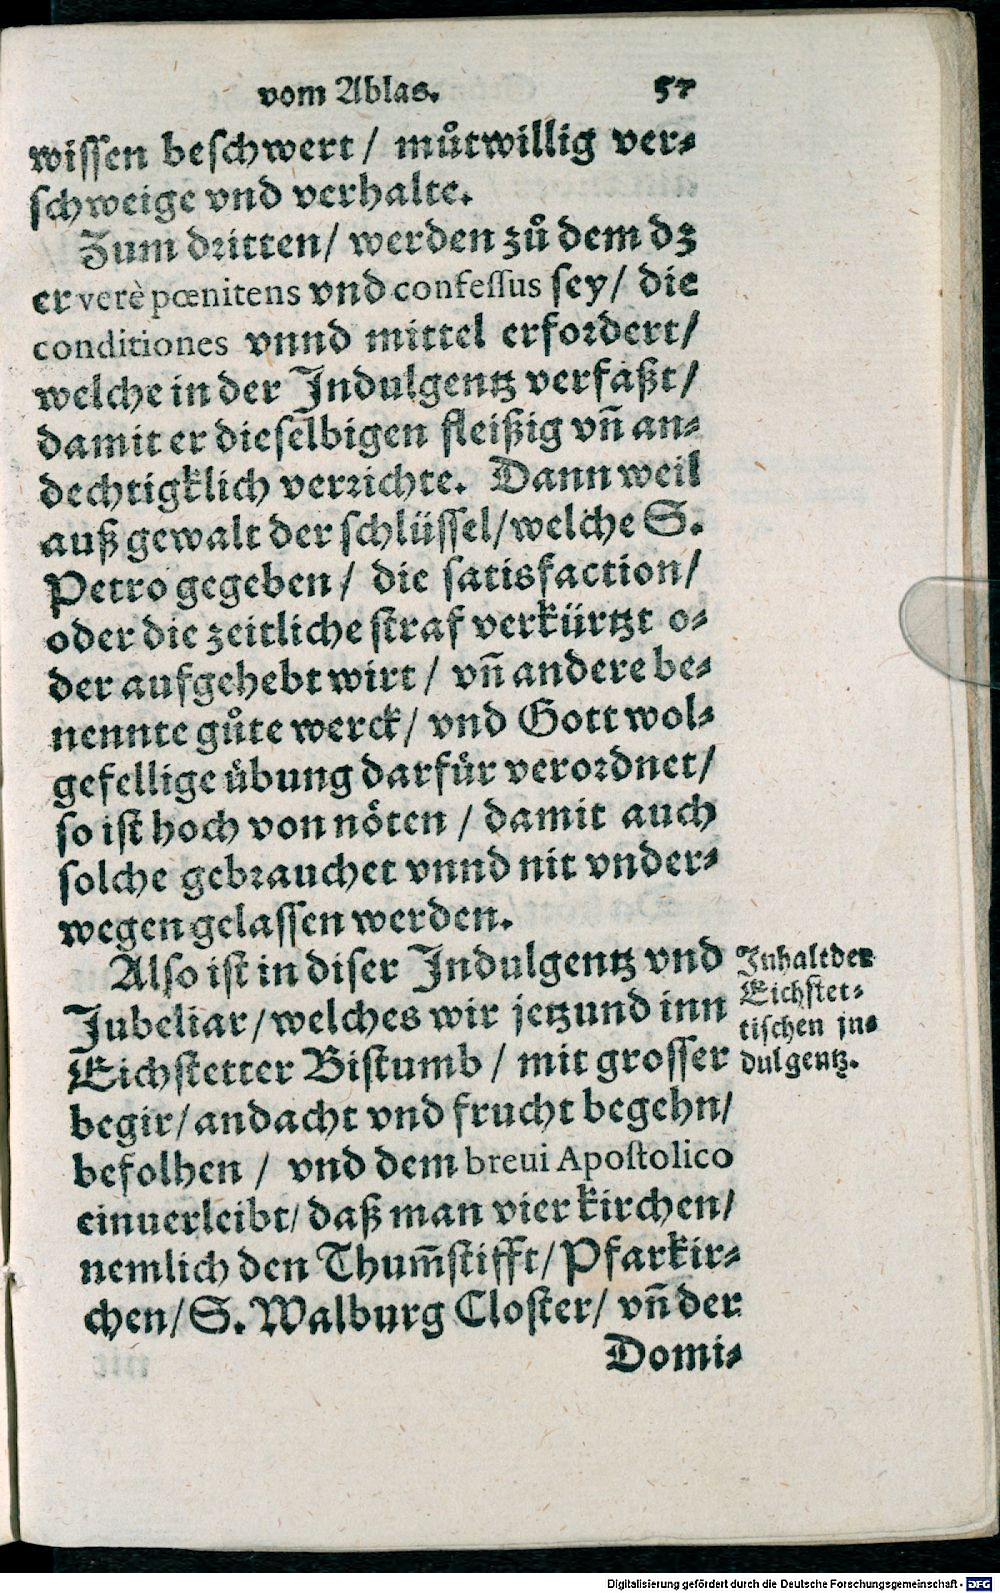 vom Ablas. 57
wissen beschwert / můtwillig ver⸗
schweige vnd verhalte.
Zum dritten / werden zů dem dz
er verè pœnitens vnd confessus sey / die
conditiones vnnd mittel erfordert /
welche in der Indulgentz verfaßt /
damit er dieselbigen fleißig vñ an⸗
dechtigklich verrichte. Dann weil
auß gewalt der schlüssel / welche S.
Petro gegeben / die satisfaction /
oder die zeitliche straf verkürtzt o⸗
der aufgehebt wirt / vñ andere be⸗
nennte gůte werck / vnd Gott wol⸗
gefellige übung darfür verordnet /
so ist hoch von nöten / damit auch
solche gebrauchet vnnd nit vnder⸗
wegen gelassen werden.
Also ist in diser Indulgentz vnd
Jubeliar / welches wir jetzund inn
Eichstetter Bistumb / mit grosser
begir / andacht vnd frucht begehn /
befolhen / vnd dem breui Apostolico
einuerleibt / daß man vier kirchen /
nemlich den Thum̃stifft / Pfarkir⸗
chen / S. Walburg Closter / vñ der
Domi⸗
Inhalt der
Eichstet⸗
tischen in⸗
dulgentz.
Digitalisierung gefördert durch die Deutsche Forschungsgemeinschaft - DFG